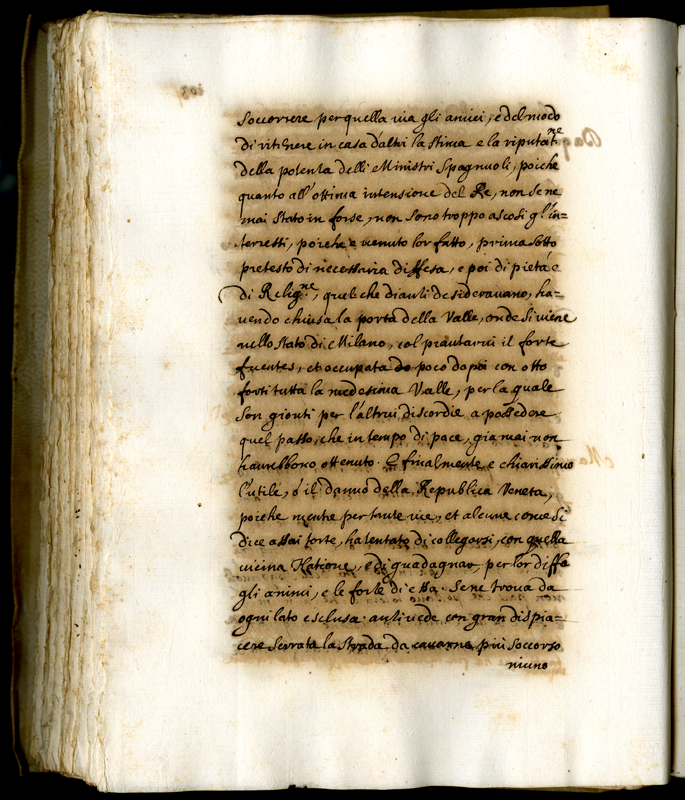 Soccorrere per quella via gli amici, e del modo
di ritenere in casa d'altri la stima e la riputat.ne
della potenza delli Ministri Spagnuoli, poiche
quanto all'ottima intensione del Re, non se ne
mai stato in forse, non sono troppo ascosi gl'in=
terressi, poiche è venuto lor fatto, prima sotto
pretesto di necessaria diffesa, e poi di pietá e
di Relig.ne, quel che dianzi desideravano, ha=
vendo chiusa la porta della Valle, onde si viene
nello stato di Milano, col piantarvi il forte
fuentes, et occupata do poco dapoi con otto
forti tutta la medesima Valle, per la quale
son gionti per l'altrui discordie a possedere
quel passo, che in tempo di pace, gia mai non
haurebbono ottenuto. E finalmente e chiarissimo
l'utile, ó il danno della Republica Veneta,
poiche mentre per tante vie, et alcune come si
dice assai torte, ha tentato di collegarsi, con quella
vicina Natione, e di guadagnar per lor diffe
gli animi, e le forze di essa. Se ne trova da
ogni lato esclusa. anzi vede con gran dispia=
cere serrata la strada da cavarne più soccorso
niuno